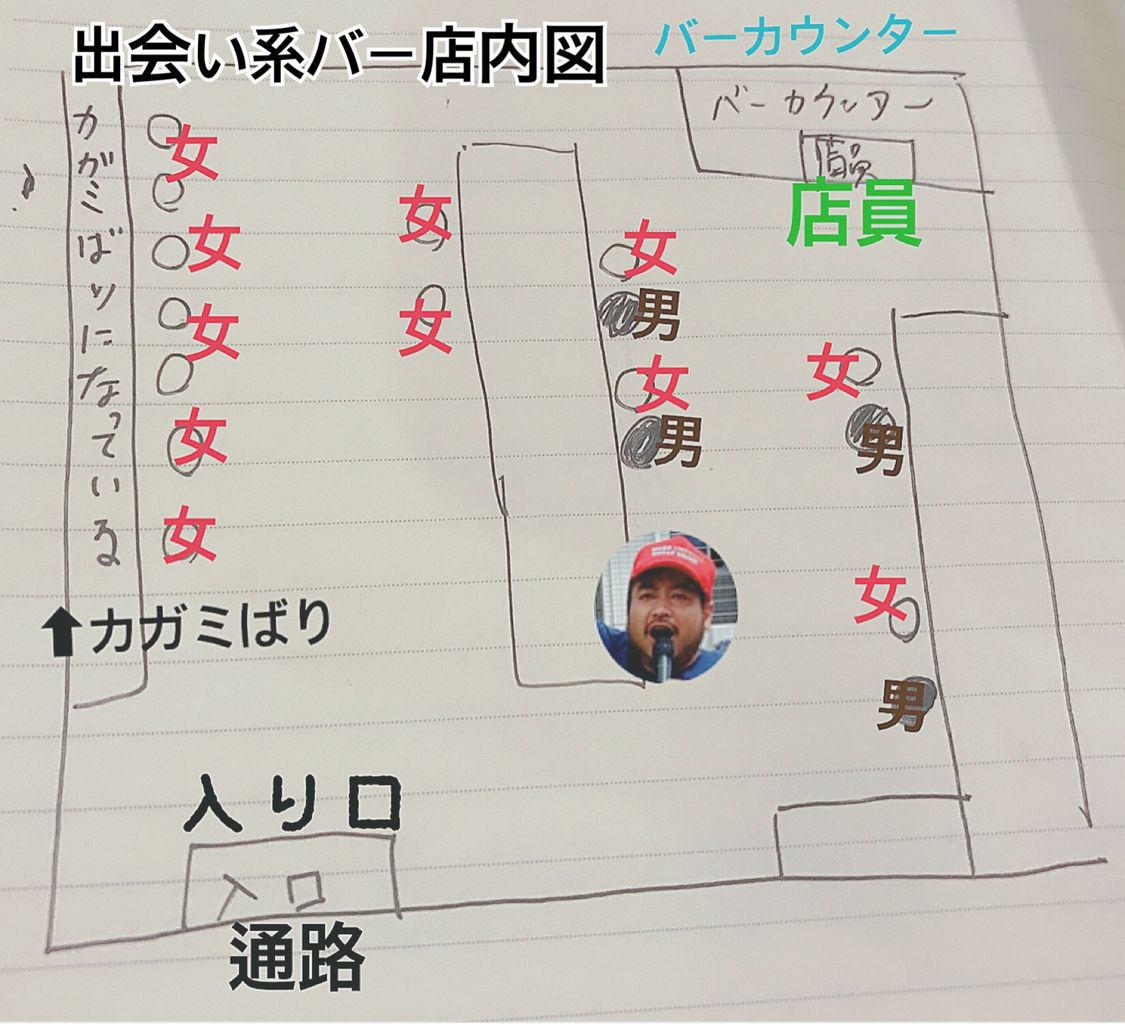 出会い系バー店内図
バーカウンター
バーカウンター
店員
店員
カガミばりになっている
女
女
女
女
女
女
女
女
男
女
男
女
男
女
男
⬆カガミばり
入り口
入口
通路